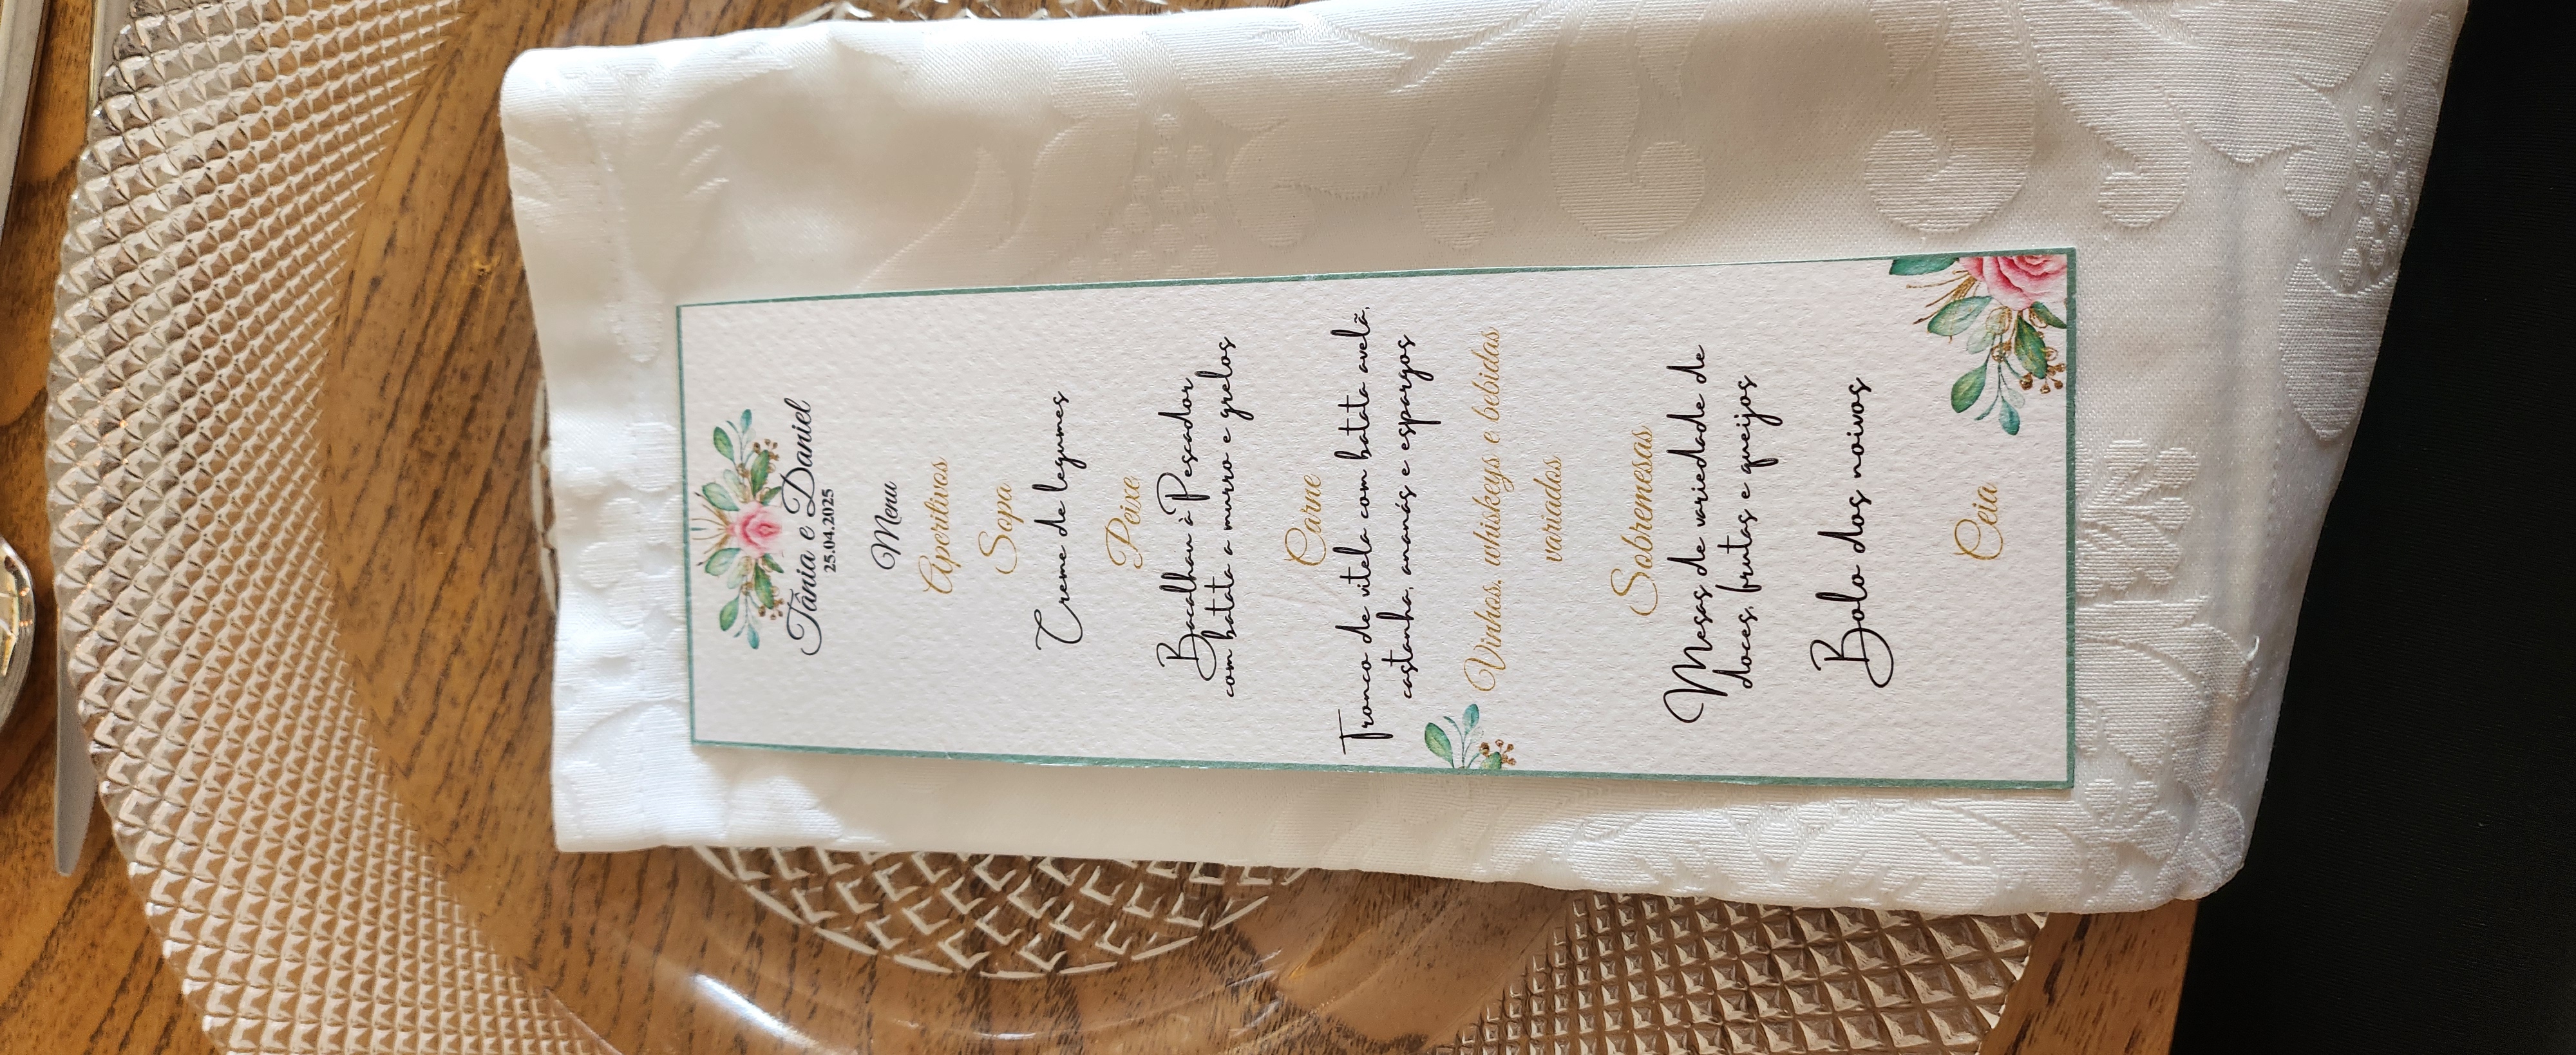 Tânia e Daniel
25.04.2025
Menu
Aperitivos
Sopa
Creme de legumes
Peixe
Bacalhau à Pescador
com batata a murro e grelos
Carne
Tronco de vitela com batata avelã,
castanha, ananás e espargos
Vinhos, whiskeys e bebidas
variadas
Sobremesas
Mesas de variedade de
doces, frutas e queijos
Bolo dos noivos
Ceia